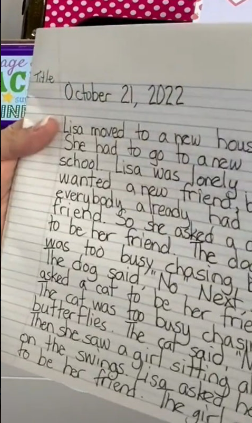 age
AC
INE
Title
October 21, 2022
Lisa moved to a new hous
She had to go to a new
school. Lisa was lonely.
wanted a new friend, b
everybody already had
friend. So she asked a d
to be her friend. The do
was too busy chasing
The dog said, "No." Next,
asked a cat to be her frie
The cat was too busy chasi
butterflies. The cat said, "N
Then she saw a girl sitting al
on the swings. Lisa asked he
to be her friend. The girl